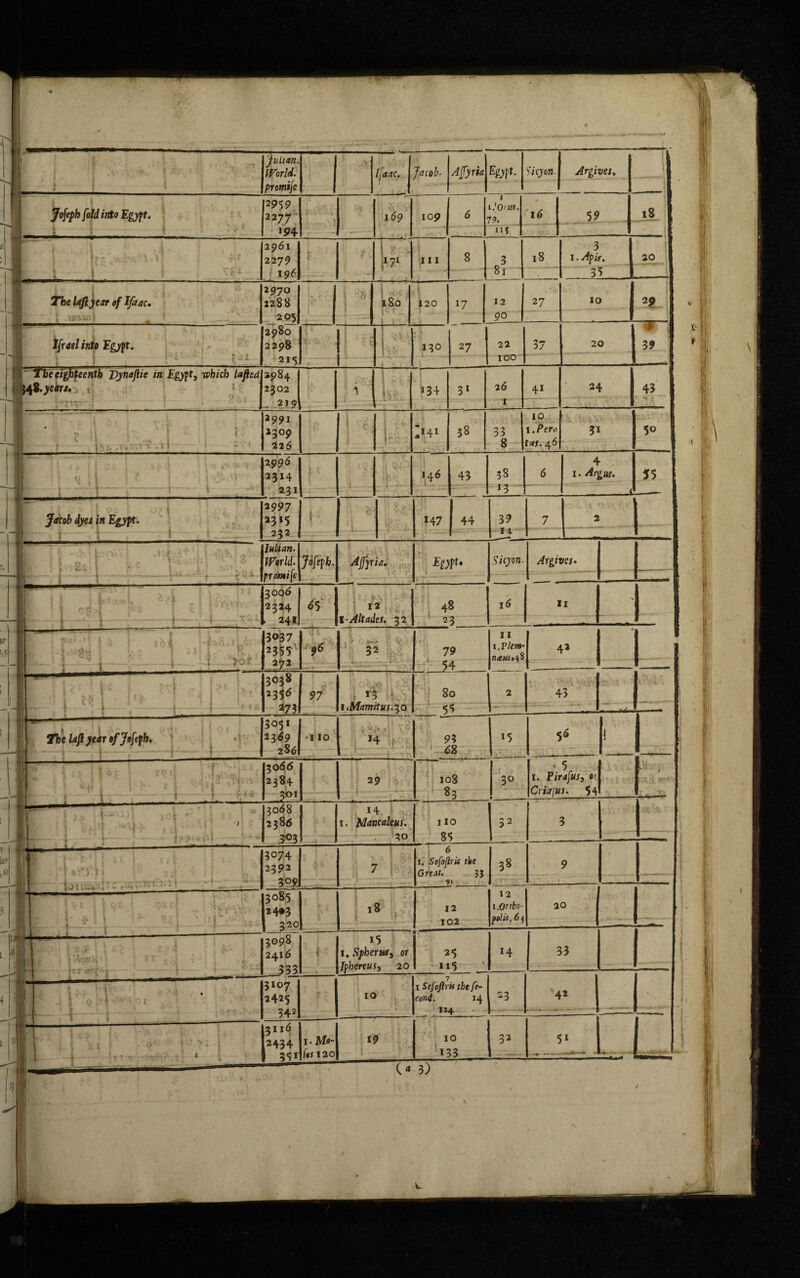 Julian. World. promise | Isaac. | Jacob. | Assyria | Egypt. | Sicyon. | Argives.
Joseph sold into Egypt. | 2959 2277 194 | 169 | 109 | 6 | 1.'Orus. 79. 115 | 16 | 59 | 18
2961 2279 196 | 171 | 111 | 8 | 3 81 | 18 | 3 1. Apis. 35 | 20
The last year of Isaac. | 2970 2288 205 | 180 | 120 | 17 | 12 90 | 27 | 10 | 29
Israel into Egypt. | 2980 2298 215 | 130 | 27 | 22 100 | 37 | 20 | 39
The eighteenth Dynastie in Egypt, which lasted 348. years. | 2984 2302 219 | 1 | 134 | 31 | 26 1 | 41 | 24 | 43
2991 2309 226 | 141 | 38 | 33 8 | 10 1. Peratus. 46 | 31 | 50
2996 2314 231 | 146 | 43 | 38 13 | 6 | 4 1. Argus. | 55
Jacob dyes in Egypt. | 2997 2315 232 | 147 | 44 | 39 14 | 7 | 2
Iulian. World. promise | Joseph. | Assyria. | Egypt. | Sicyon. | Argives.
3006 2324 241 | 65 | 12 1. Altades. 32 | 48 23 | 16 | 11
3037 2355 272 | 96 | 32 | 79 54 | 11 1. Plemnæus. 48 | 42
3038 2356 273 | 97 | 13 1. Mamitus. 30 | 80 55 | 2 | 43
The last year of Joseph. | 3051 2369 286 | 110 | 14 | 93 68 | 15 | 56
3066 2384 301 | 29 | 108 83 | 30 | 5 1. Pirasus, or Criasus. 54
3068 2386 303 | 14 1. Mancaleus. 30 | 110 85 | 32 | 3
3074 2392 309 | 7 | 6 1. Sesostris the Great. 33 91 | 38 | 9
3085 2403 320 | 18 | 12 102 | 12 1. Orthopolis. 63 | 20
3098 2416 333 | 15 1. Spherus, or Iphereus, 20 | 25 115 | 14 | 33
3107 2425 342 | 10 | 7 1 Sesostris the second. 14 124 | 23 | 42
3116 2434 351 | 1. Moses 120 | 19 | 10 133 | 32 | 51
(a 3)